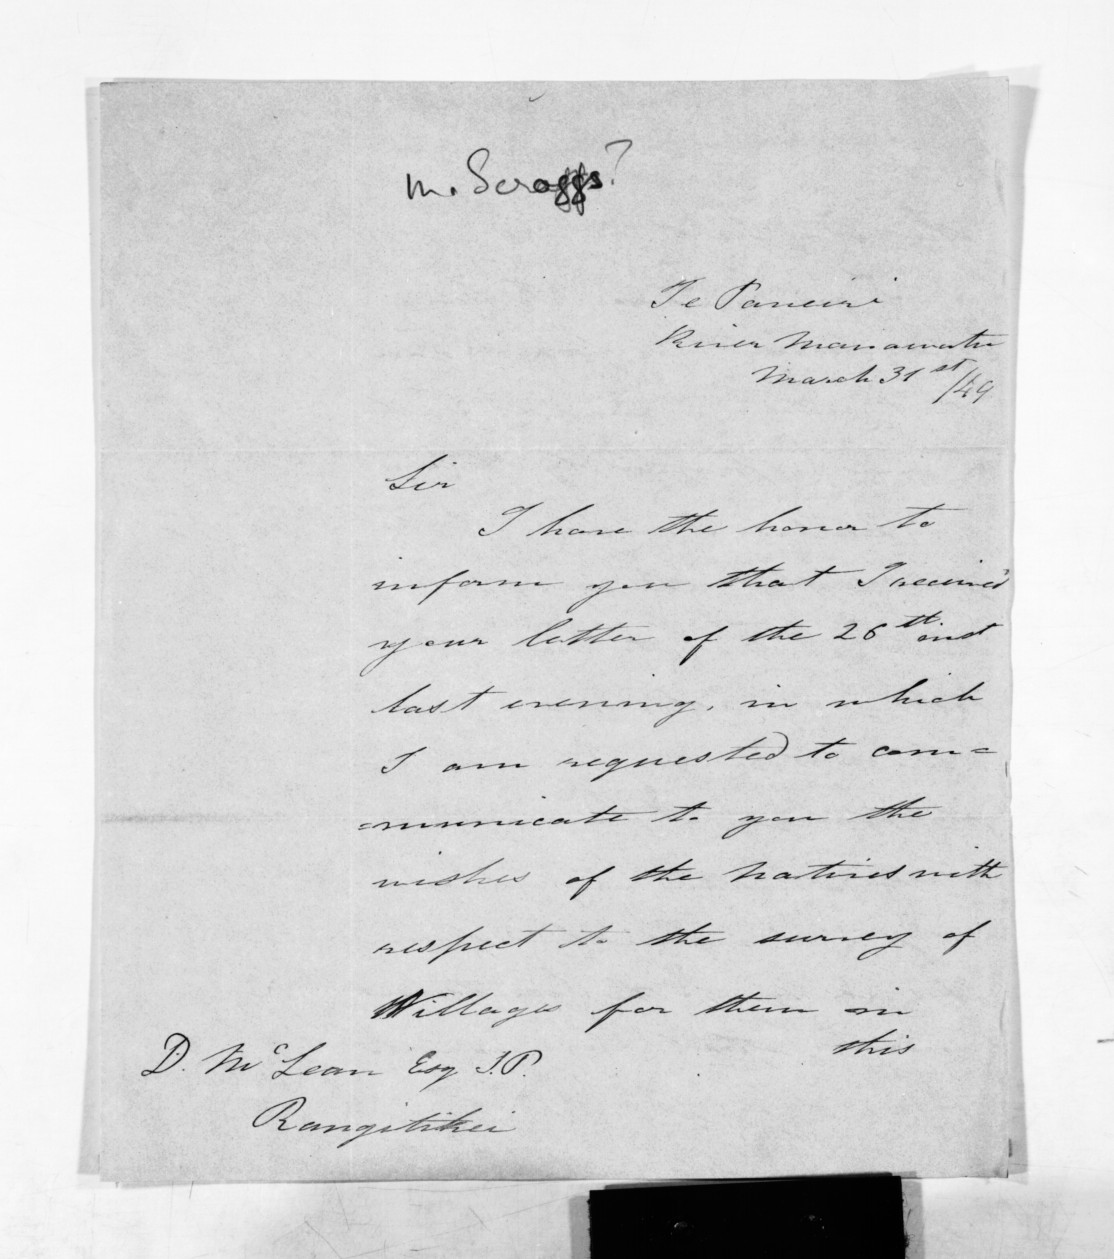 M. Scroggs?
Te Paneiri
River Manawatu
March 31st/49
Sir
I have the honor to
inform you that I received
your letter of the 26th inst
last evening, in which
I am requested to com=
=municate to you the
wishes of the Natives with
respect to the survey of
Villages for them in
this
D. McLean Esq J.P.
Rangitikei